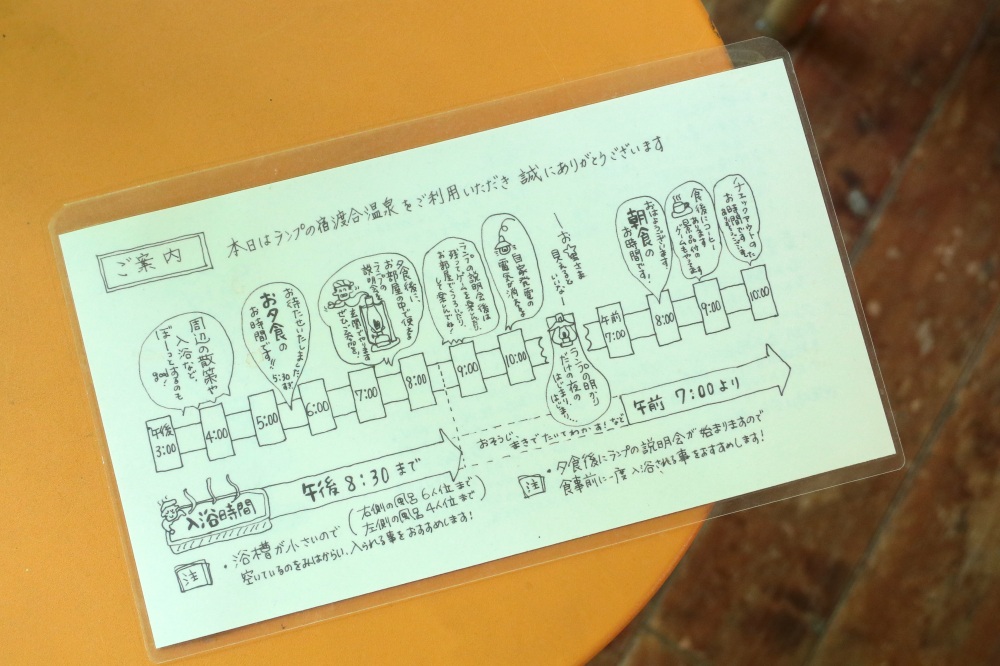 ご案内
本日はランプの宿渡合温泉をご利用いただき 誠にありがとうございます
周辺の散策や
入浴など、
ぼーっとするのも
good!
お待たせいたしました
お夕食の
お時間です!!
5:30
夕食後に、
お部屋の中で使える
ランプの
説明会を
玄関で行います
ぜひご参加を!
ランプの説明会後は
お部屋でくつろいだり、
自家発電の
電気が消える
お星さま
見えると
いいなー
おはようございます
朝食の
お時間です!
食後にコーヒー
あります
景品付の
チェックアウトの
お時間です
午後
3:00
4:00
5:00
6:00
7:00
8:00
9:00
10:00
ランプの明かり
だけの夜の
はじまり
はじまり…
午前
7:00
8:00
9:00
10:00
入浴時間
午後 8:30 まで
おそうじ、まきでたいてわかす!など
午前 7:00 より
注
・浴槽が小さいので
(右側の風呂 6人位まで
左側の風呂 4人位まで)
空いているのをみはからい、入られる事をおすすめします!
注
・夕食後にランプの説明会が始まりますので
食事前に一度入浴される事をおすすめします!